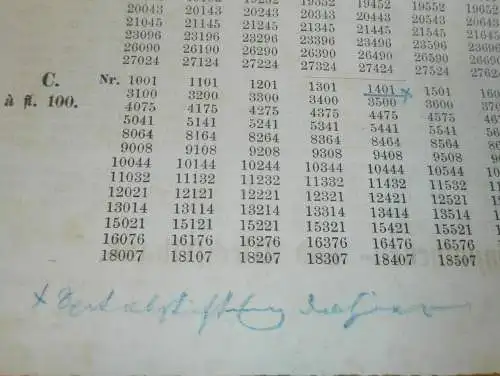 19452 19552 1965
20043 20143 20243 20343 20443 20543 2064
21045 21145 21245 21345 21445 21545 2164
23096 23196 23296 23396 23496 23596 2369
26090 26190 26290 26390 26490 26590 2669
27024 27124 27224 27324 27424 27524 2762
C. Nr. 1001 1101 1201 1301 1401 x 1501 160
à fl. 100. 3100 3200 3300 3400 3500 3600 370
4075 4175 4275 4375 4475 4575 467
5041 5141 5241 5341 5441 5541 564
8064 8164 8264 8364 8464 8564 866
9008 9108 9208 9308 9408 9508 960
10044 10144 10244 10344 10444 10544 1064
11032 11132 11232 11332 11432 11532 1163
12021 12121 12221 12321 12421 12521 1262
13014 13114 13214 13314 13414 13514 1361
15021 15121 15221 15321 15421 15521 1562
16076 16176 16276 16376 16476 16576 1667
18007 18107 18207 18307 18407 18507 1860
x